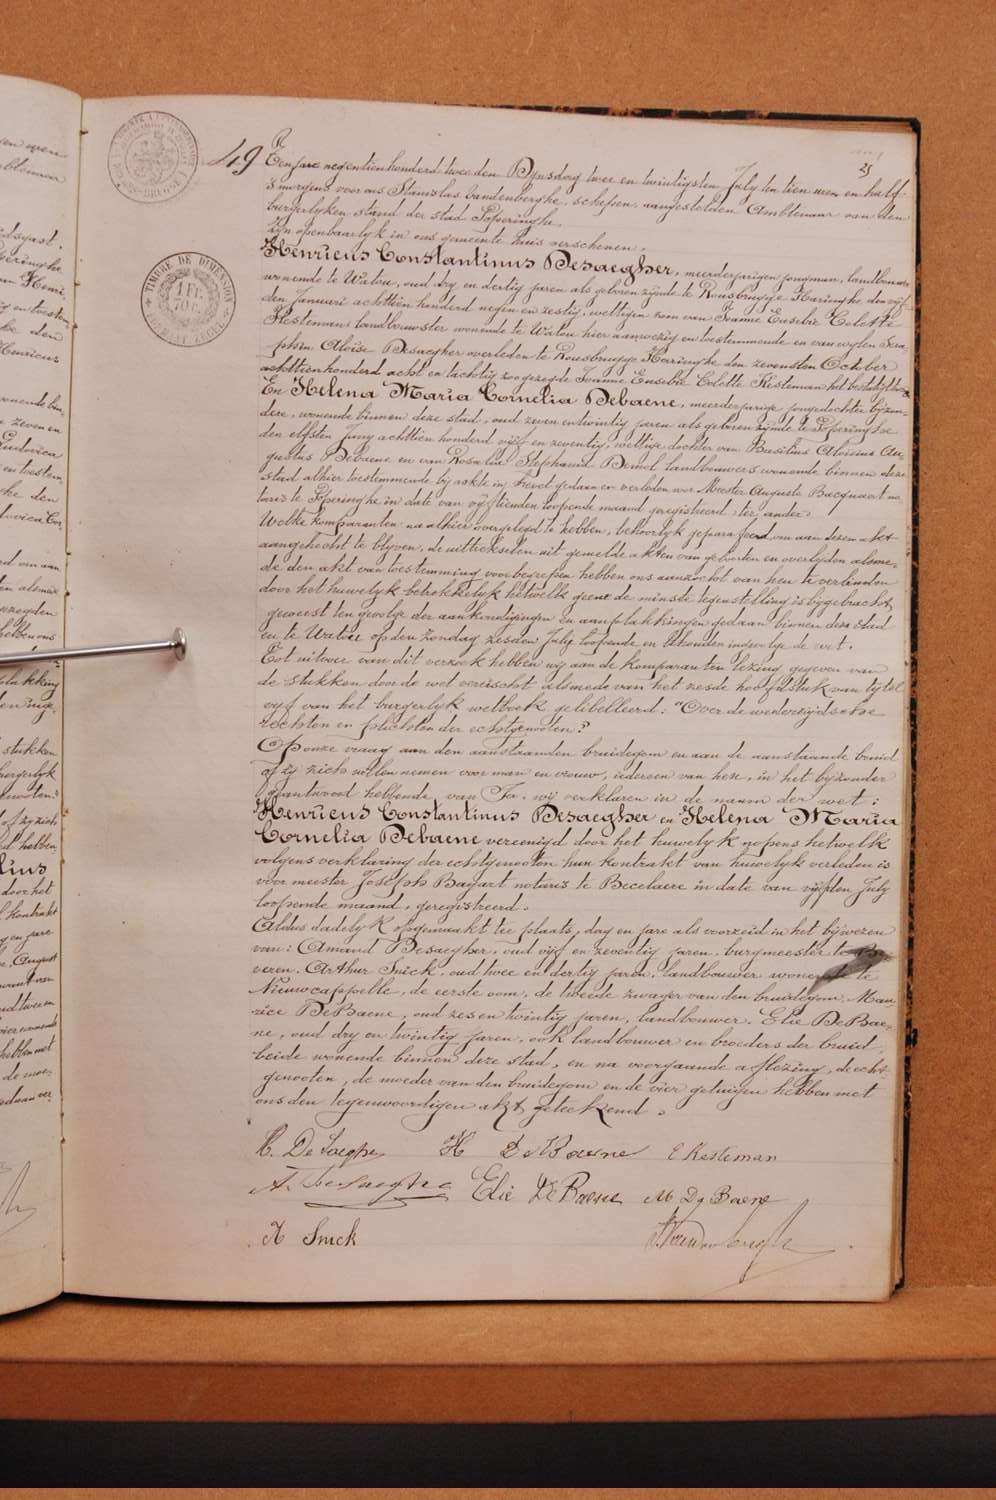 25
49 Ten jare negentienhonderd twee den Dynsdag twee en twintigsten July ten tien uren en half
's morgens voor ons Stanislas Vandenberghe, schepen, aangestelden Ambtenaar van den
burgerlyken stand der stad Poperinghe,
zijn openbaarlyk in ons gemeente huis verschenen.
Henricus Constantinus Desaegher, meerderjarigen jongman, landbouwer
wonende te Watou, oud dry en dertig jaren als geboren zijnde te Rousbrugge-Haringhe den vijf-
den Januari achttien honderd negen en zestig, wettigen zoon van Joanne Eusebie Colette
Kesteman, landbouwster wonende te Watou hier aanwezig en toestemmende en van wylen Sera-
phin Aloise Desaegher overleden te Rousbrugge Haringhe den zevensten October
achttienhonderd acht en tachtig zoo gezegde Joanne Eusebie Colette Kesteman het bestatigt.
En Helena Maria Cornelia Debaene, meerderjarige jongedochter bijzon-
dere, wonende binnen deze stad, oud zeven en twintig jaren als geboren zijnde te Poperinghe
den elfsten Juny achttien honderd vijf en zeventig, wettige dochter van Basilius Aloisius Au-
gustus Debaene en van Rosalia Stephania Demol landbouwers wonende binnen deze
stad alhier toestemmende bij akte in brevet gedaan en verleden voor Meester Auguste Bacquaert no-
taris te Poperinghe in date van vijftienden loopende maand geregistreerd, ter ander.
Welke komparanten na alhier overgelegd te hebben, behoorlyk geparafeerd om aan dezen akt
aangehecht te blyven, de uittreksels uit gemelde akten van geboorten en overlyden alsme-
de den akt van toestemming voorbegrepen hebben ons aanzocht van hen te verbinden
door het huwelyk betrekkelyk hetwelk geene de minste tegenstelling is bygebracht
geweest ten gevolge der aankondigingen en aanplakkingen gedaan binnen deze stad
en te Watou op den zondag zesden July loopende en behouden ingevolge de wet.
Tot uitvoer van dit verzoek hebben wij aan de komparanten lezing gegeven van
de stukken door de wet vereischt alsmede van het zesde hoofdstuk van tytel
vyf van het burgerlyk wetboek gelibelleerd: "Over de wederzijdsche
rechten en plichten der echtgenooten."
Op onze vraag aan den aanstaanden bruidegom en aan de aanstaande bruid
of zy zich willen nemen voor man en vrouw, iedereen van hen, in het byzonder
geantwoord hebbende, van Ja. wij verklaren in de naam der wet:
Henricus Constantinus Desaegher en Helena Maria
Cornelia Debaene vereenigd door het huwelyk nopens hetwelk
volgens verklaring der echtgenooten hun kontrakt van huwelyk verleden is
voor meester Joseph Bayart notaris te Becelaere in date van vijfden July
loopende maand, geregistreerd.
Aldus dadelyk opgemaakt ter plaats, dag en jare als voorzeid in het bijwezen
van: Amand Desaegher, oud vijf en zeventig jaren, burgmeester te Be-
veren, Arthur Snick, oud twee en dertig jaren, landbouwer wonende te
Nieuwcappelle, de eerste oom, de tweede zwager van den bruidegom, Mau-
rice DeBaene, oud zes en twintig jaren, landbouwer, Elie DeBae-
ne, oud dry en twintig jaren, ook landbouwer en broeders der bruid,
beide wonende binnen deze stad, en na voorgaande aflezing, de echt-
genooten, de moeder van den bruidegom en de vier getuigen hebben met
ons den tegenwoordigen akt geteekend.
H. De Saegher H De Baene E Kesteman
A. Desaegher Elie De Baene M De Baene
A Snick S. Vandenberghe
TIMBRE DE DIMENSION
1 FR. 70 C.